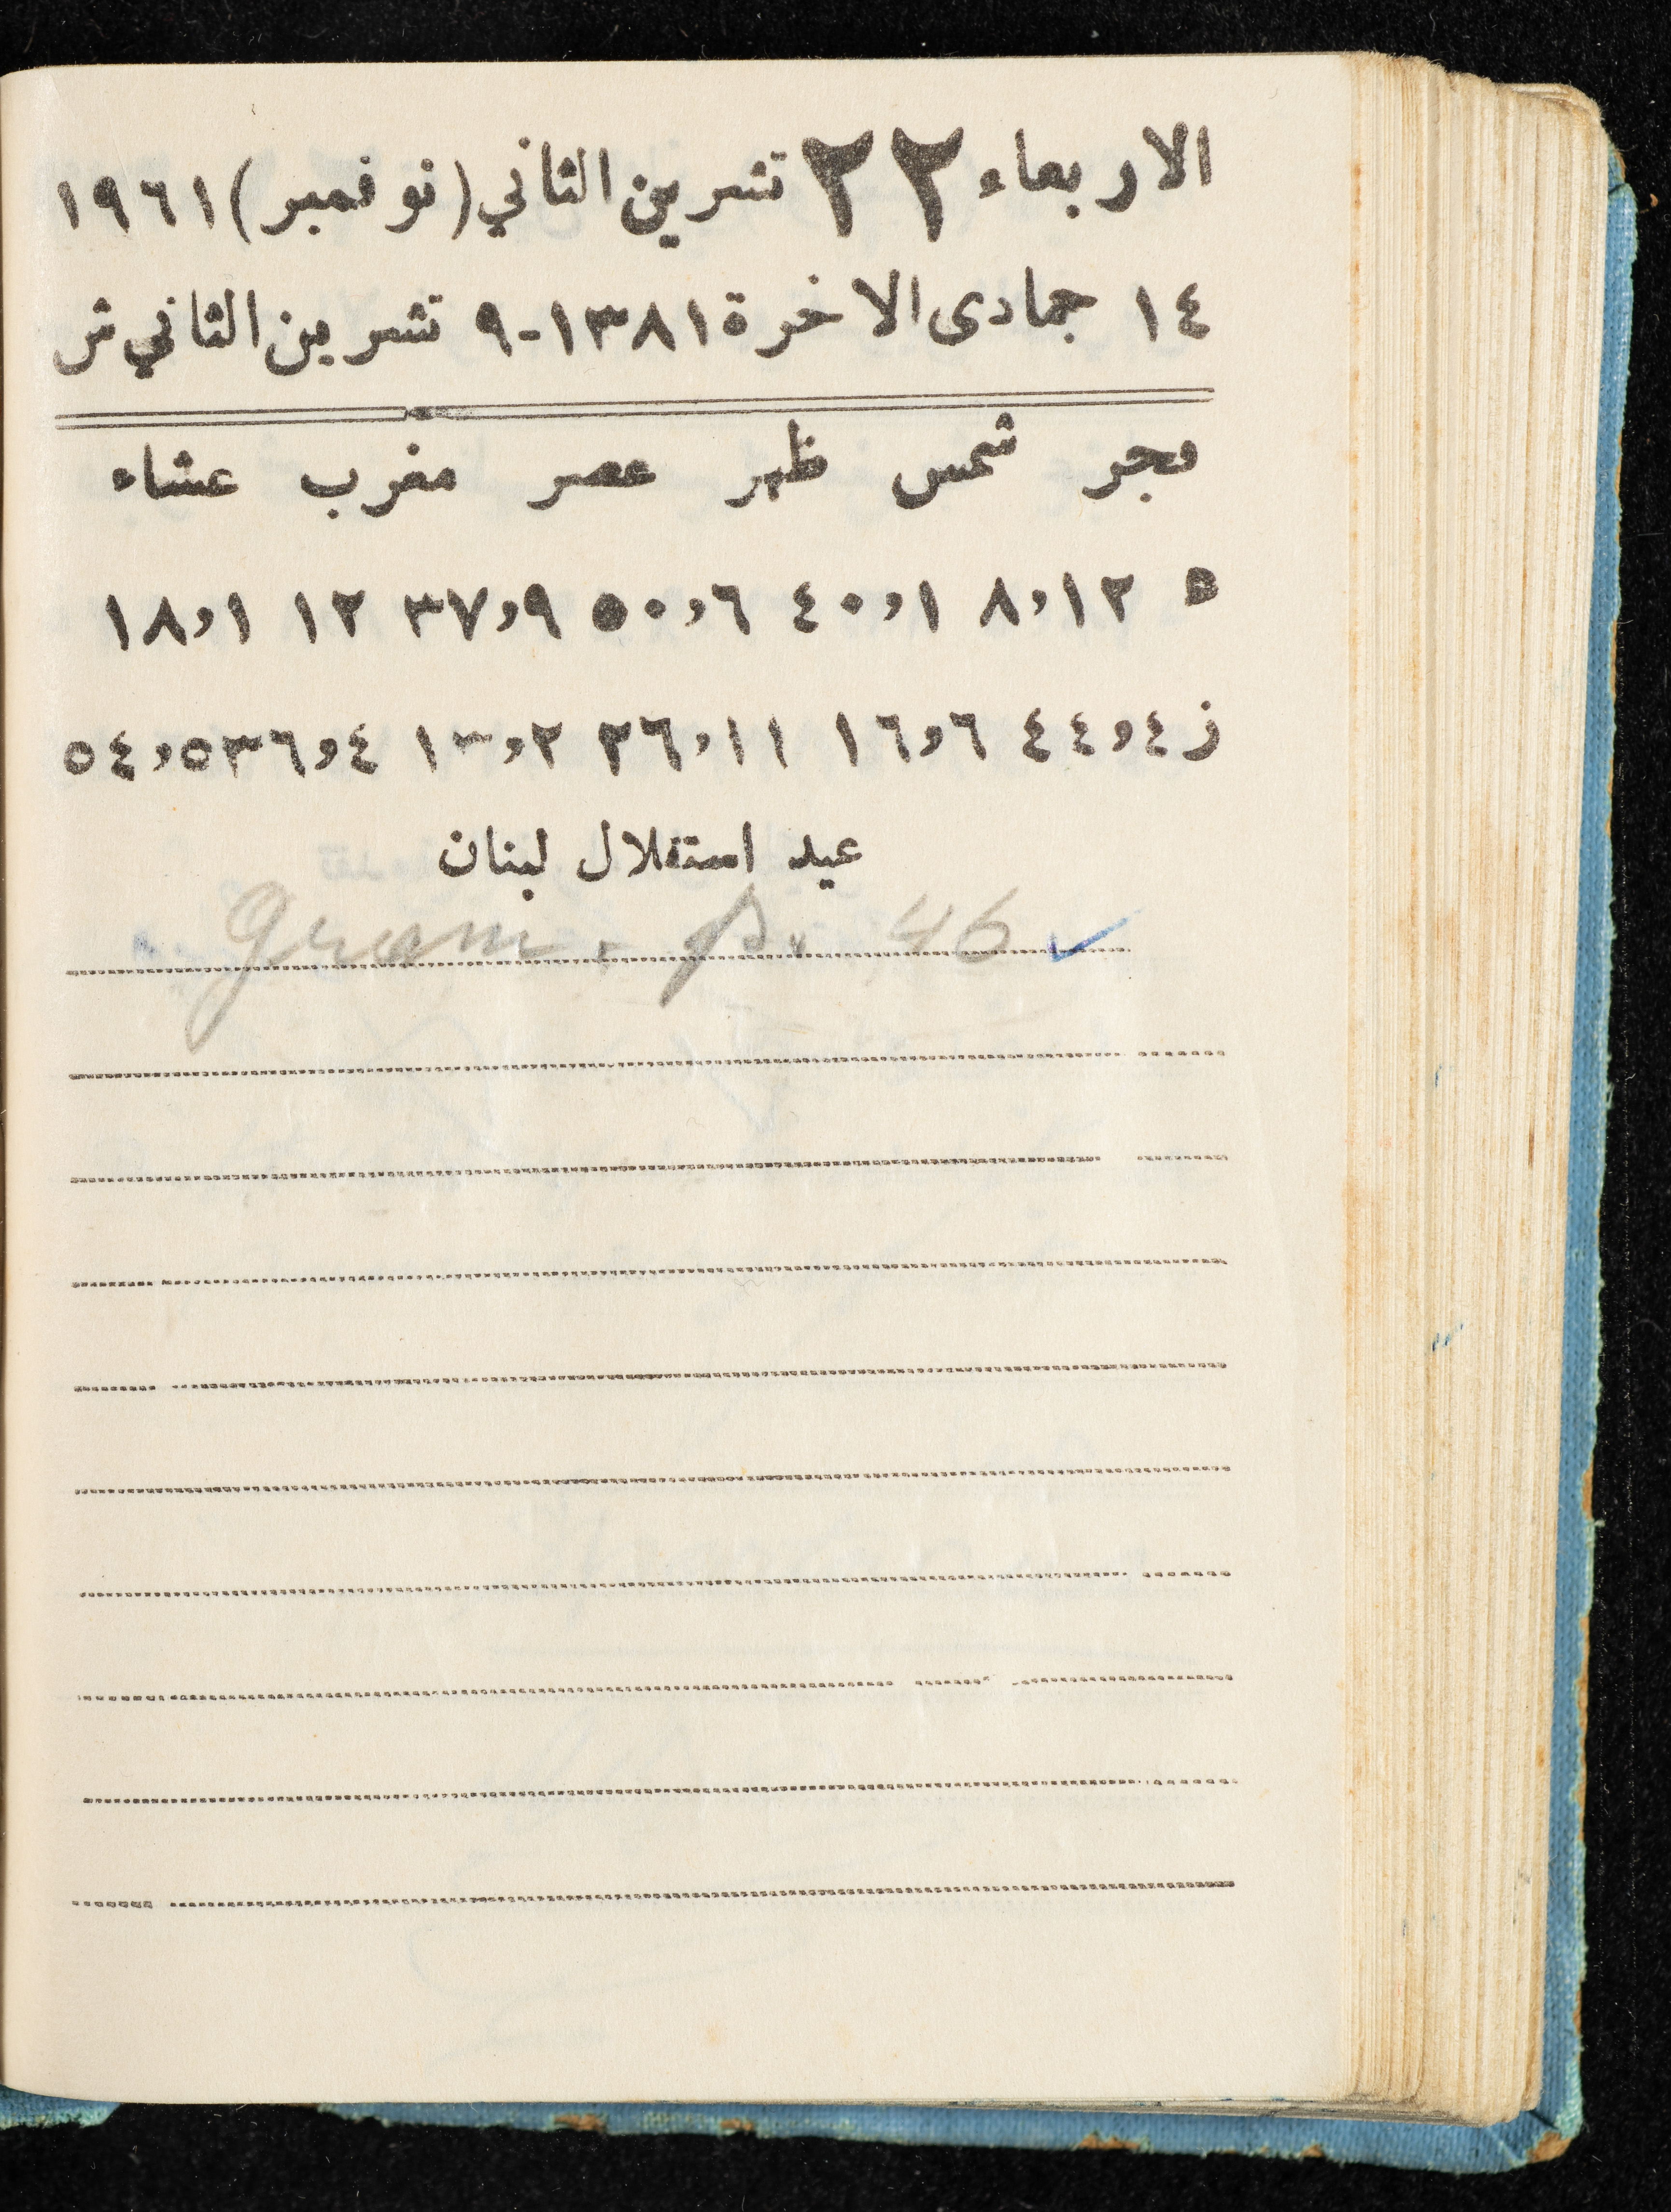 الاربعاء ٢٢ تشرين الثاني (نوفمبر) ١٩٦١
١٤ جمادى الاخرة ١٣٨١-٩ تشرين الثاني ش
فجر شمس ظهر عصر مغرب عشاء
٥ ٨,١٢ ٤٠,١ ٥٠,٦ ٣٧,٩ ١٢ ١٨,١
ز ٤٤,٤ ١٦,٦ ٢٦,١١ ١٣,٢ ٣٦,٤ ٥٤,٥
عيد استقلال لبنان
Gram. p. 46 ✓